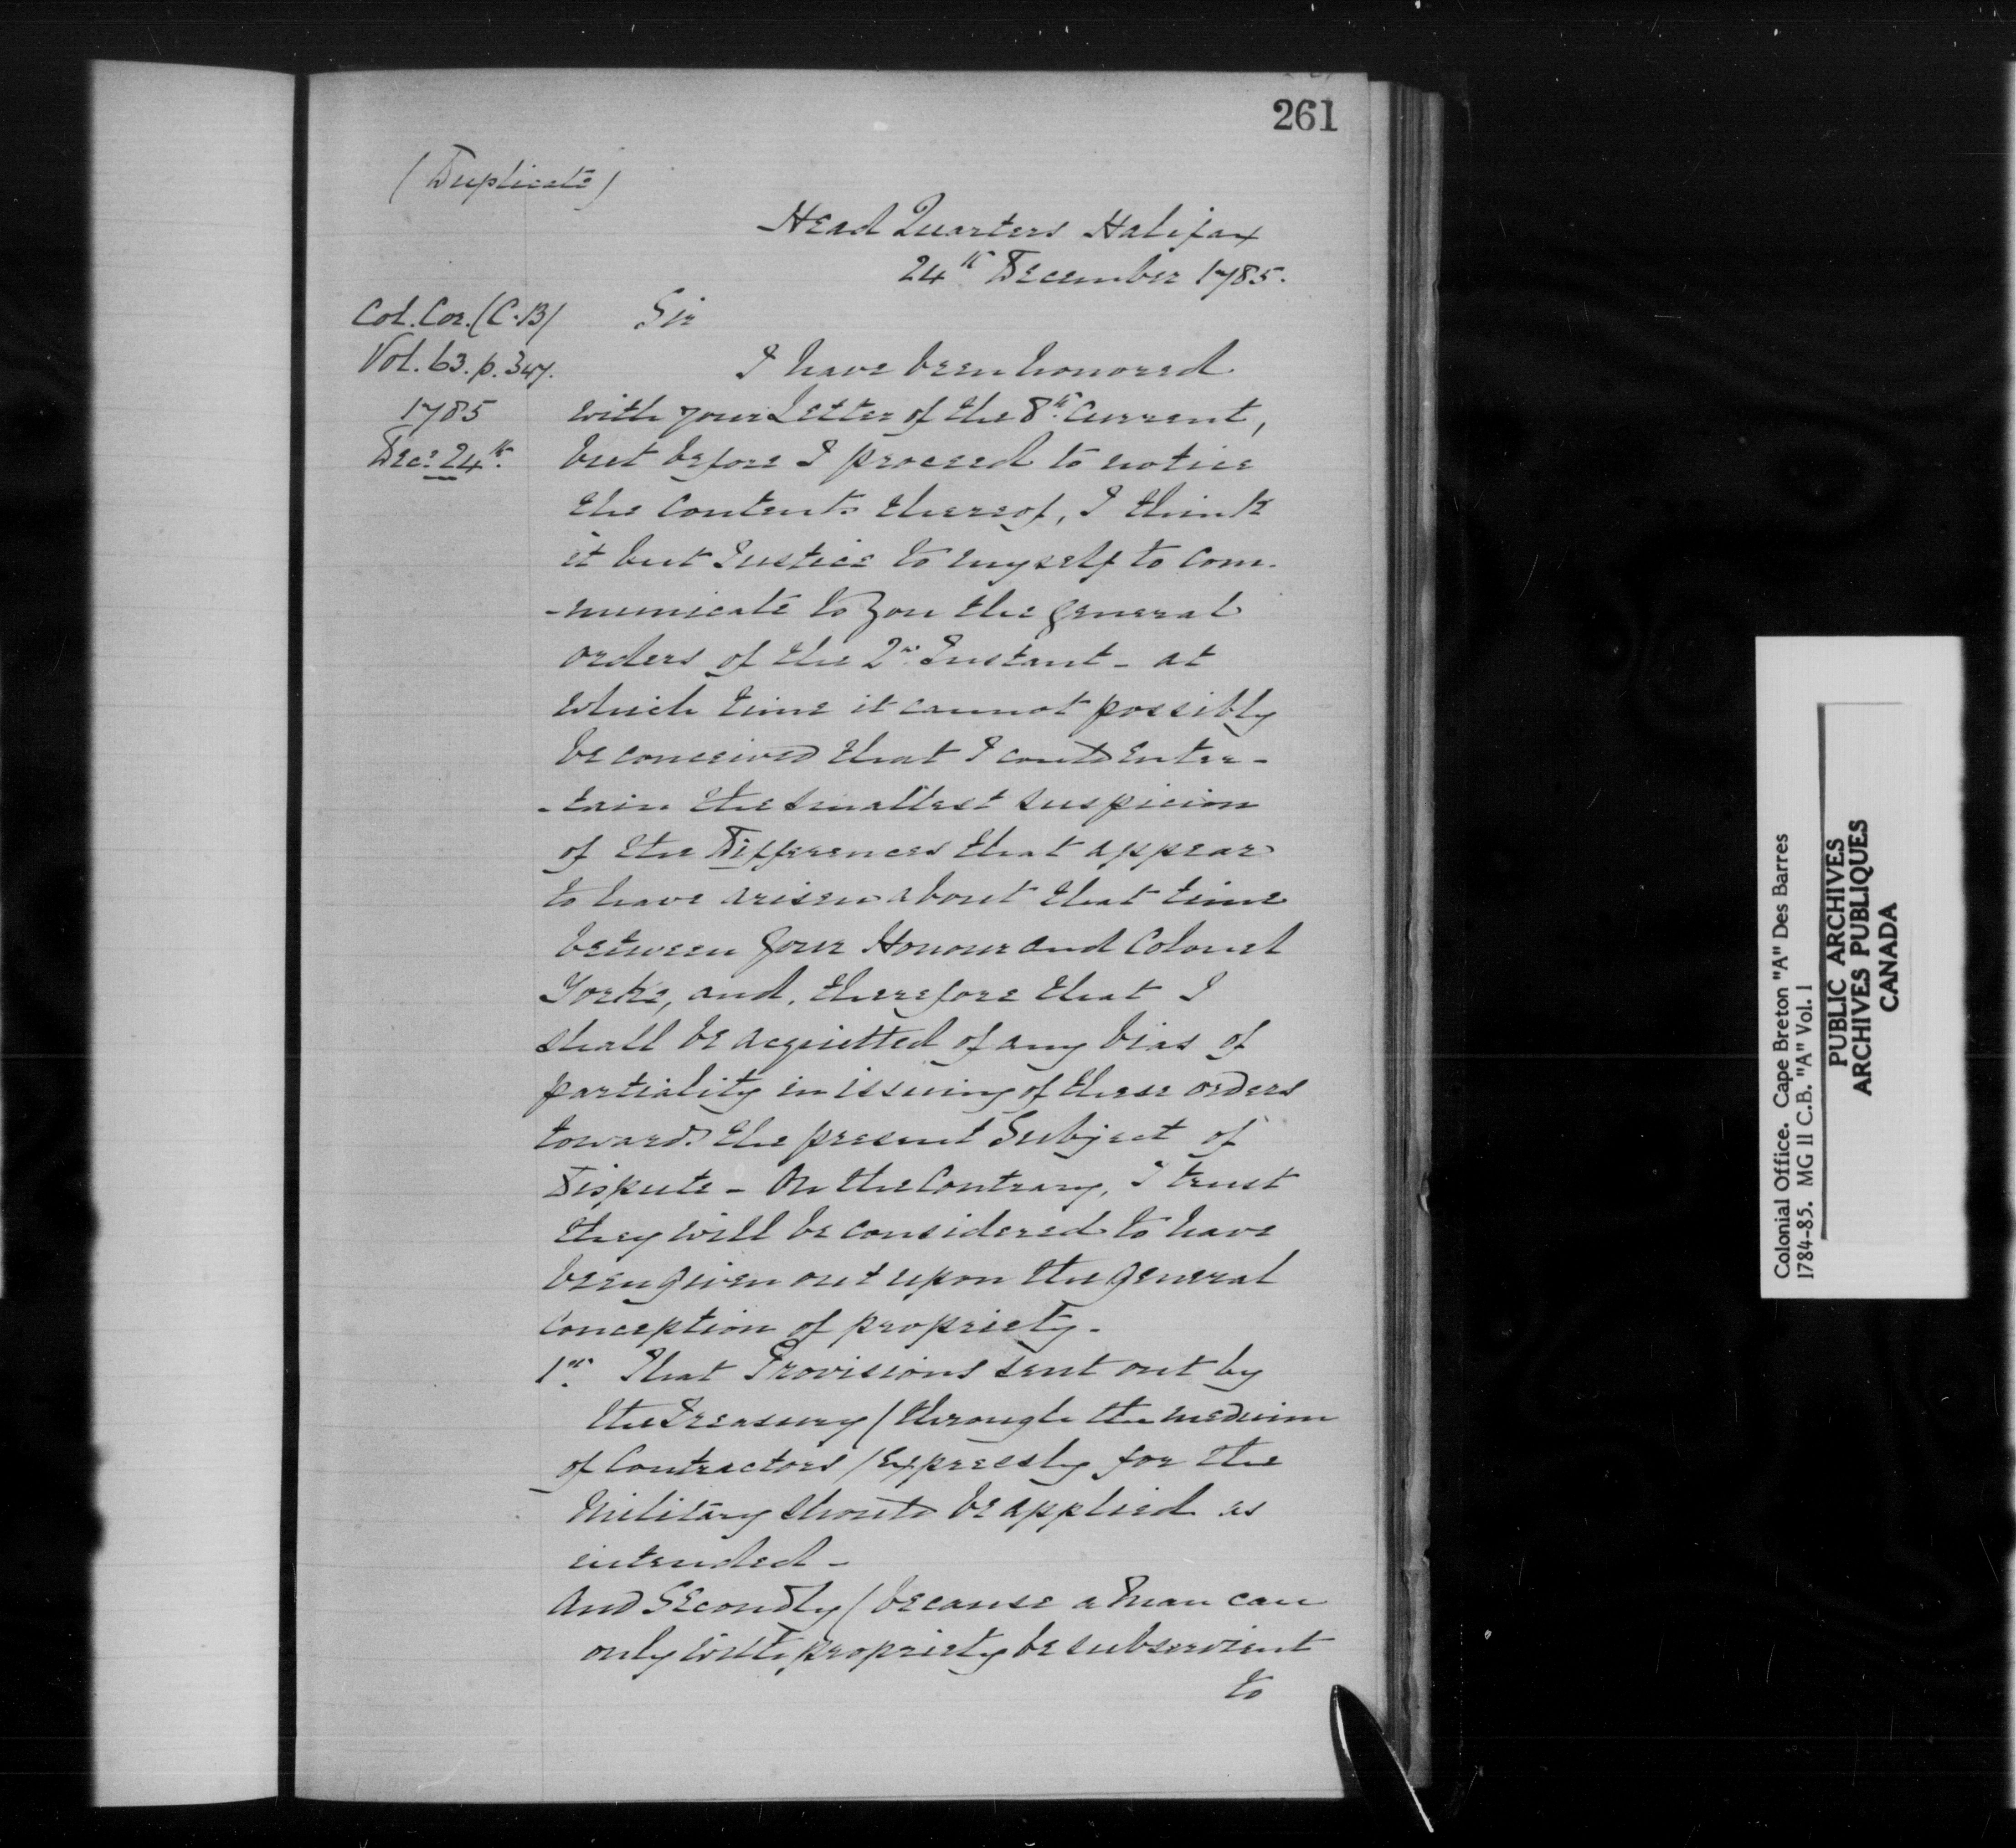 261
(Duplicate)
Head Quarters Halifax
24th December 1785.
Col. Cor. (C.B)
Vol. 63. p. 347.
1785
Decr 24th
Sir
I have been honored
with your Letter of the 8th Current,
but before I proceed to notice
the Contents thereof, I think
it but Justice to myself to com-
-municate to you the General
orders of the 2nd Instant - at
which time it cannot possibly
be conceived that I could enter-
-tain the smallest suspicion
of the Differences that appear
to have arisen about that time
between your Honour and Colonel
Yorke, and, therefore that I
shall be acquitted of any bias of
partiality in issuing of these orders
towards the present Subject of
Dispute - On the Contrary, I trust
they will be considered to have
been given out upon the general
conception of propriety -
1st That Provisions sent out by
the Treasury / through the medium
of Contractors / expressly for the
Military should be applied as
intended -
And Secondly / because a man can
only with propriety be subservient
to
Colonial Office. Cape Breton "A" Des Barres
1784-85. MG 11 C.B. "A" Vol. 1
PUBLIC ARCHIVES
ARCHIVES PUBLIQUES
CANADA